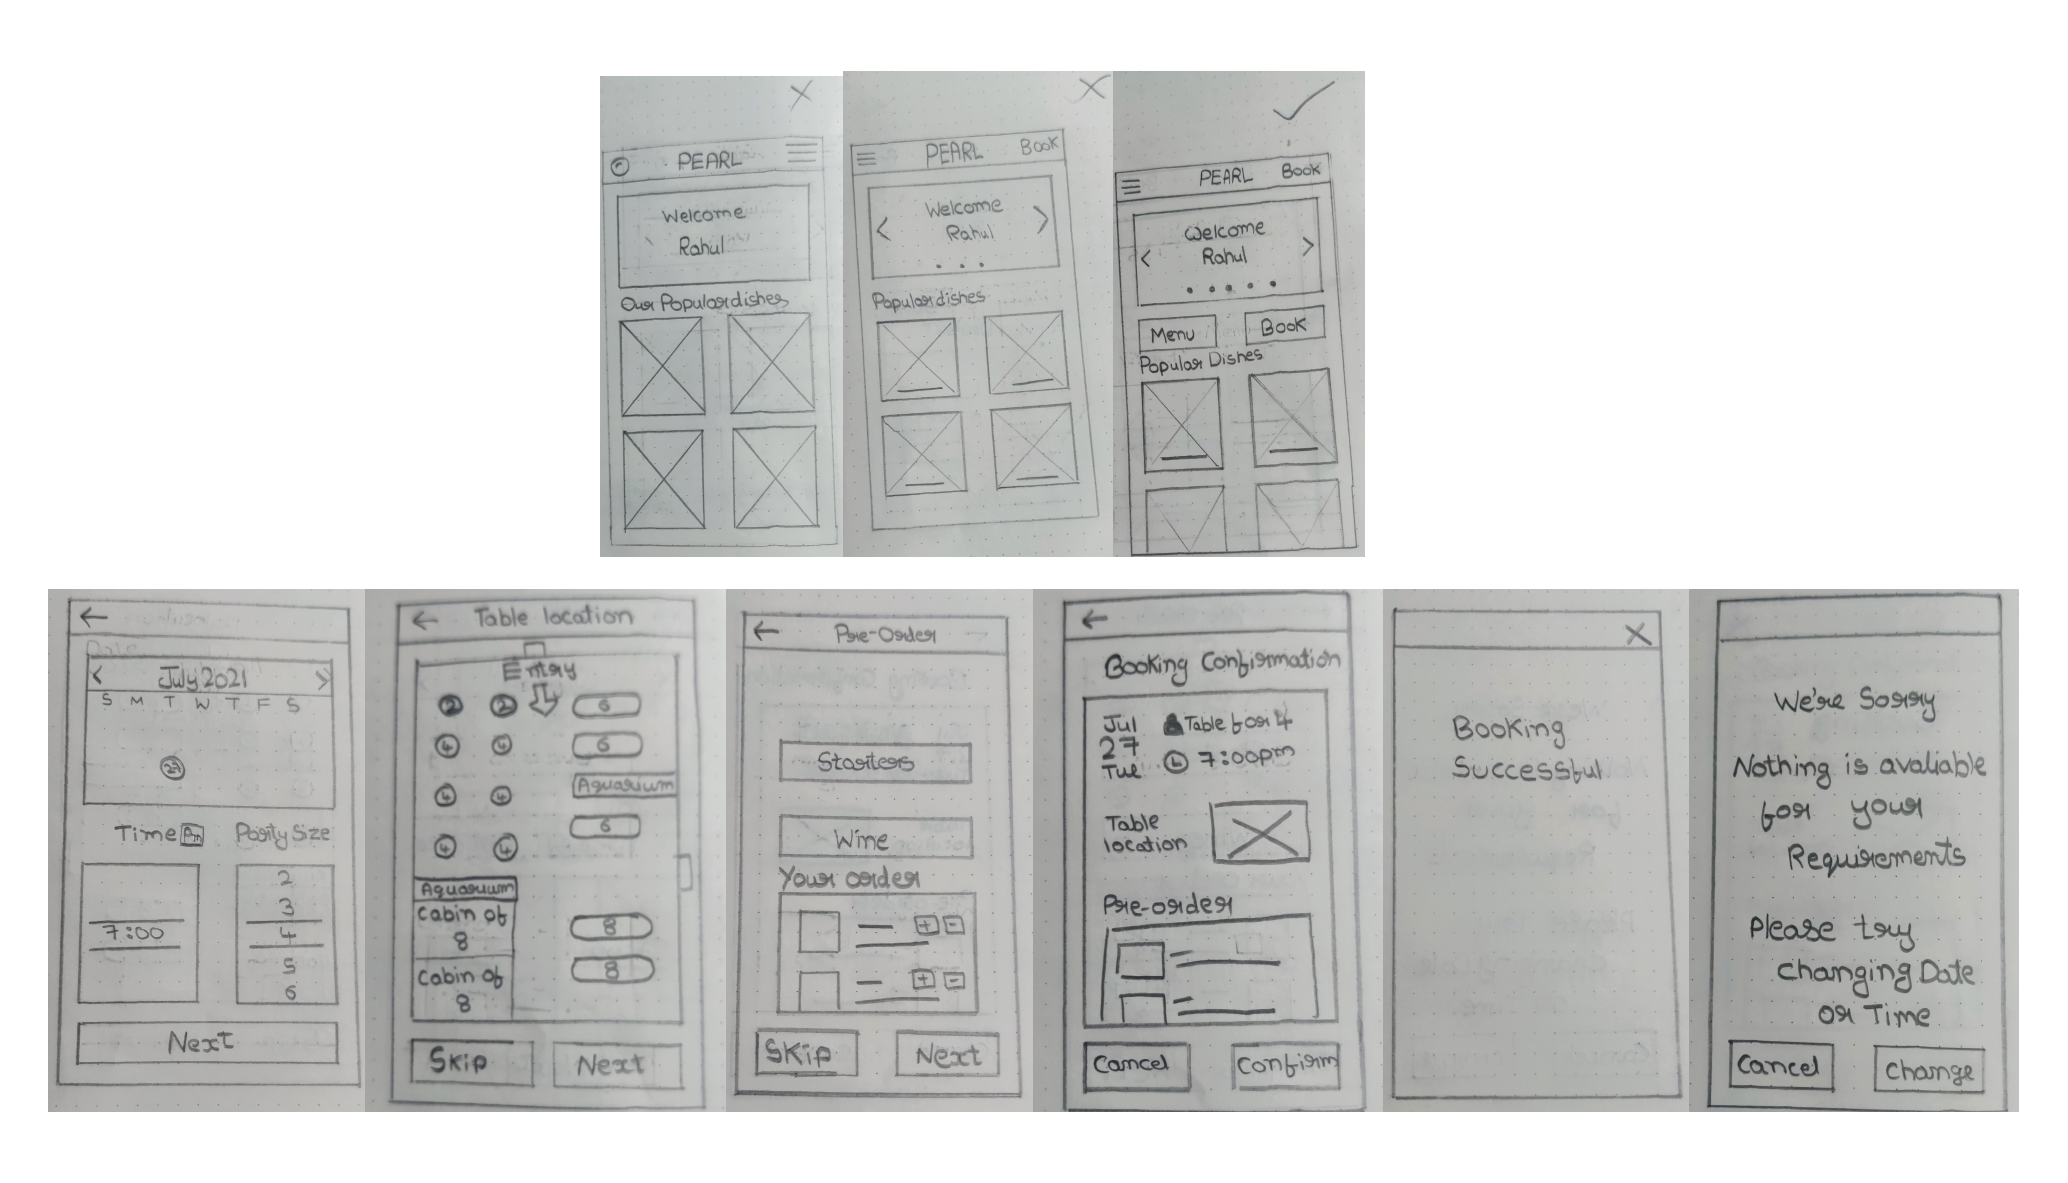 PEARL
Welcome
Rahul
Our Popular dishes
PEARL Book
< Welcome >
Rahul
Popular dishes
PEARL Book
< Welcome >
Rahul
Menu Book
Popular Dishes
←
< July 2021 >
S M T W T F S
27
Time Pm Party Size
2
3
7:00 4
5
6
Next
← Table location
Entry
2 2 6
4 4 6
Aquarium
4 4
6
4 4
Aquarium
Cabin of
8
8
Cabin of
8
8
Skip Next
← Pre-Order
Starters
Wine
Your order
+ -
+ -
Skip Next
←
Booking Confirmation
Jul Table for 4
27
7:00pm
Tue
Table
location
Pre-order
Cancel Confirm
X
Booking
Successful
We're Sorry
Nothing is avaliable
for your
Requirements
Please try
changing Date
or Time
Cancel Change